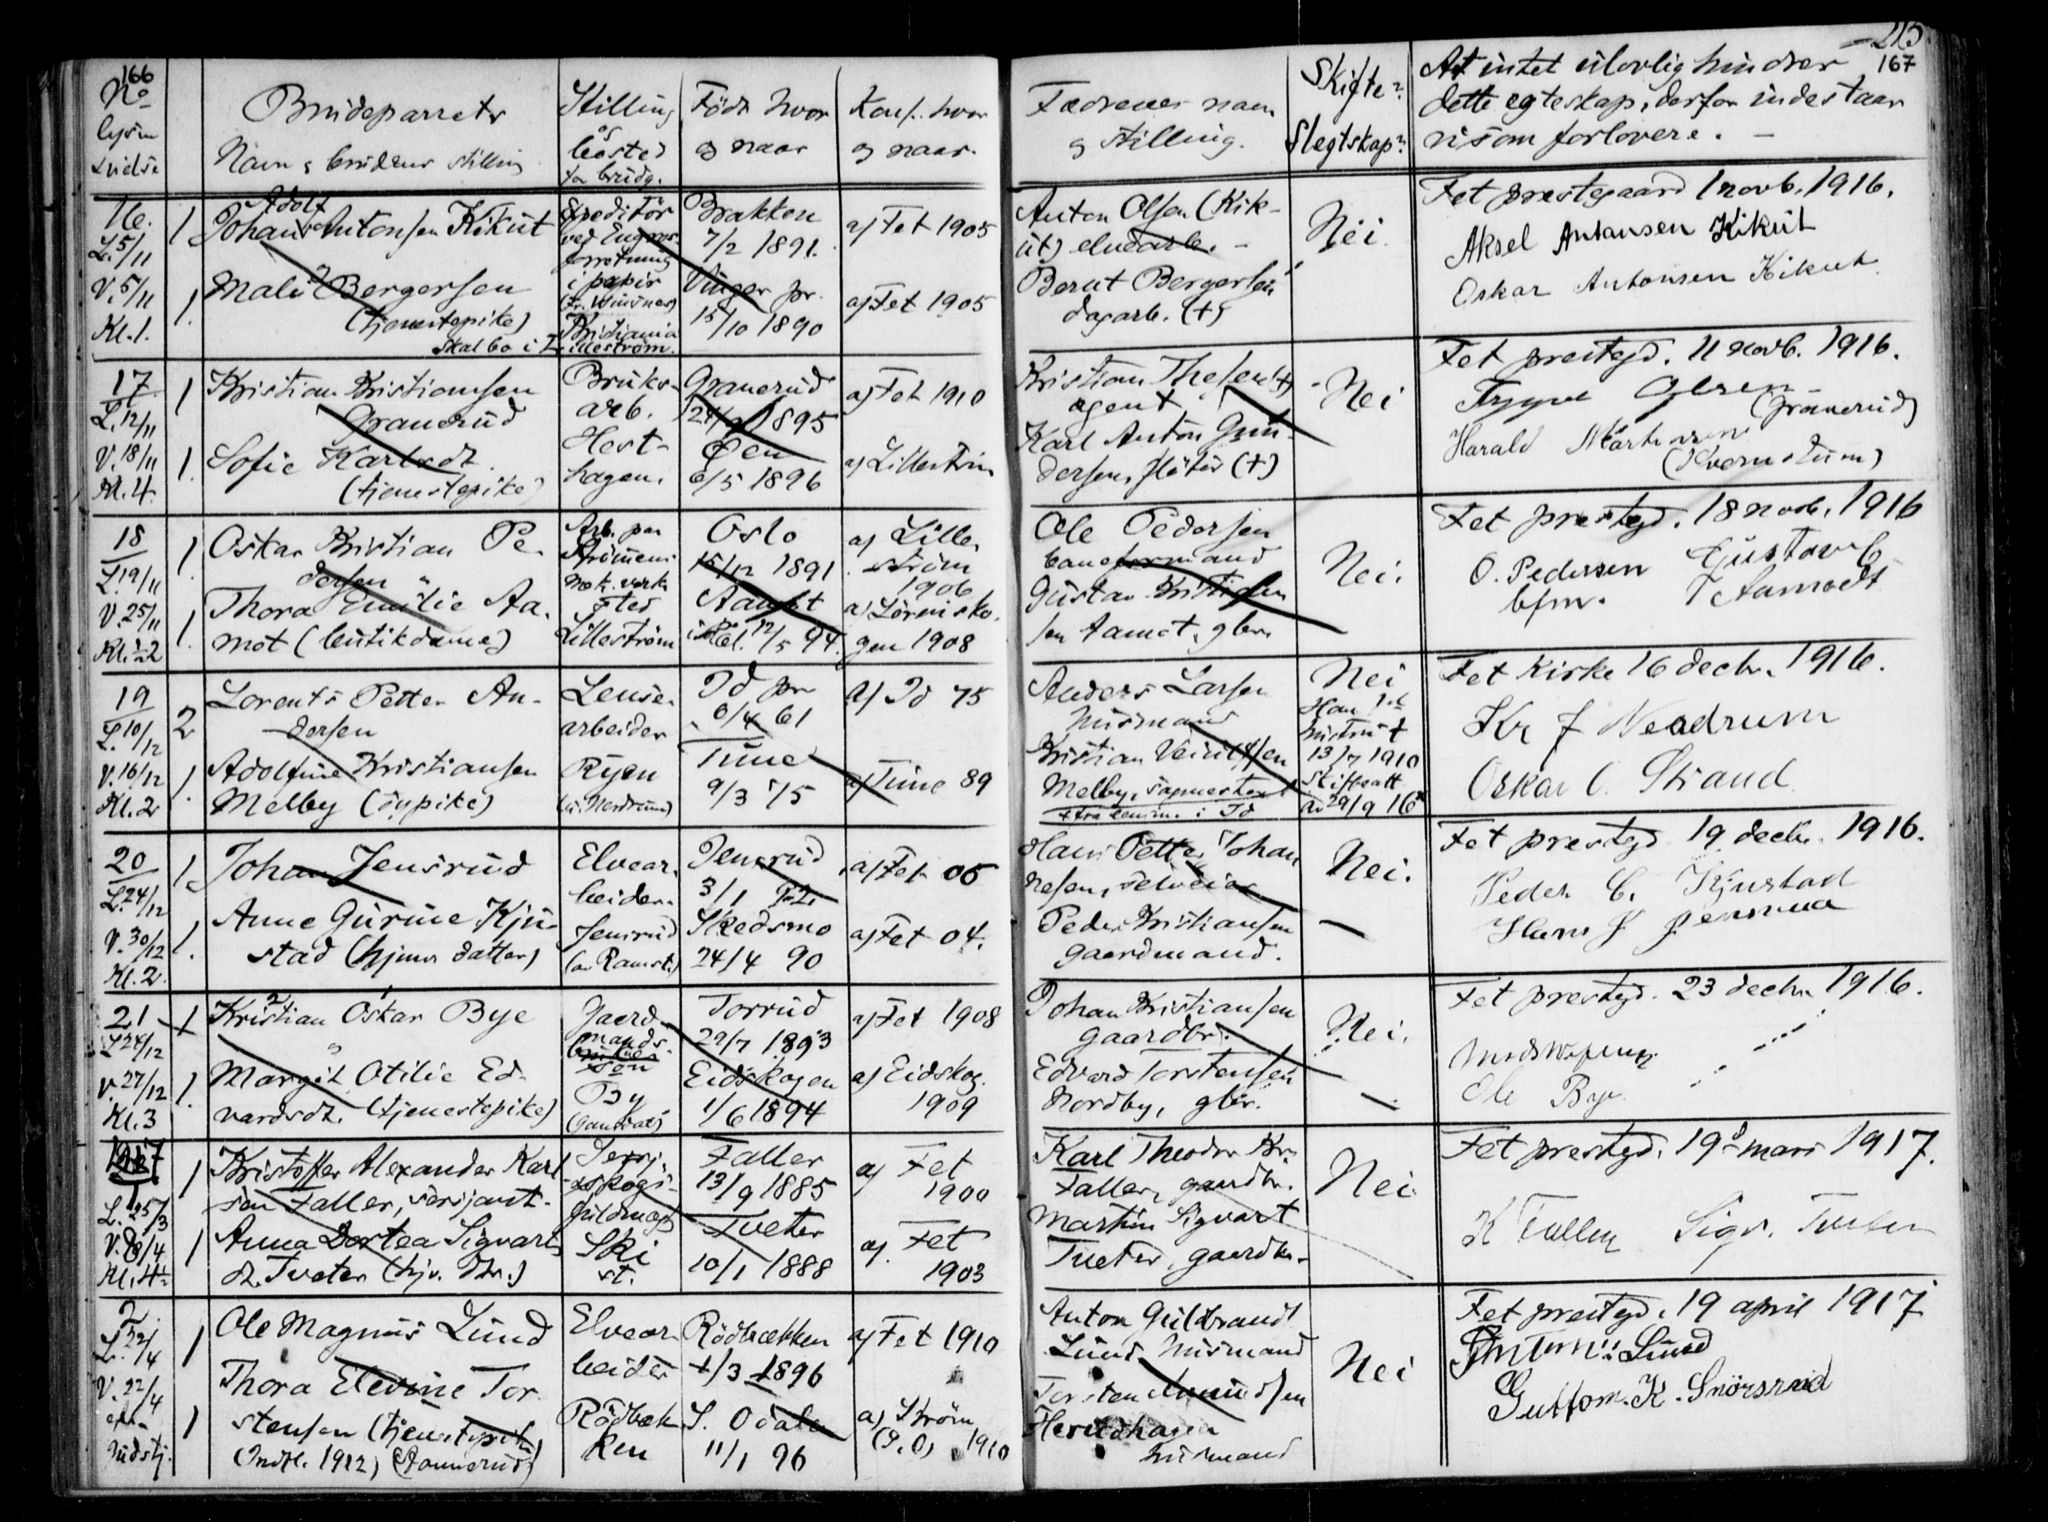 166
No
lysn
Brudeparrets
Navn & brudens stilling
Stilling
og
bosted
for brudg.
Født hvor
og naar
Konf. hvor
og naar.
Fædrenes navn
og stilling.
Skifte?
Slegtskap?
At intet ulovlig hindrer
dette egteskap, derfor indestaar
vi som forlovere. —
215
167
16.
L. 5/11
V. 5/11
Kl. 1.
1
1.
Adolf
Johan Antonsen Kikut
Mali Bergersen
(tjenestepike)
Skal bo i Lilleström.
Speditör
ved Engros
forretning
i papir
Kristiania
Brakken
7/2 1891.
Vinger pr.
15/10 1890
a) Fet 1905
a) Fet 1905
Anton Olsen (Kik-
ut) elvearb. -
Bernt Bergersen
dagarb. (+)
Nei.
Fet prestegaard 1 novb. 1916.
Aksel Antonsen Kikut
Oskar Antonsen Kikut
17
L. 12/11
V. 18/11
Kl. 4.
1
1.
Kristian Kristiansen
Granerud
Sofie Karlsdt.
(tjenestepike)
Bruks-
arb.
Hest-
hagen.
Granerud
1895
Øen
6/5 1896
a) Fet 1910
a) Lillestrøm
Kristian Thesen (+)
agent
Karl Anton Gun-
dersen, fløter (+)
Nei
Fet prestegd. 11 novb. 1916.
Trygve Olsen
(Granerud)
Harald
18
L. 19/11
V. 25/11
1
1.
Oskar Kristian Pe-
dersen
Thora Emilie Aa-
mot (butikdame)
Arb. paa
Strömmens
mek. verk
sted
Lilleström
Oslo
15/12 1891
Aamot
12/5 94.
a) Lille-
ström
1906
a) Lörensko-
gen 1908
Ole Pedersen
baneformand
Gustav Kristian-
sen Aamot, gbr.
Nei.
Fet prestegd. 18 novb. 1916
O. Pedersen Gustav C
bfm. Aamodt
19
L. 10/12
V. 16/12
Kl. 2
2
1.
Lorents Petter An-
dersen
Adolfine Kristiansen
Melby (sypike)
Lense-
arbeider
Ryen
Id pr
6/4 61
Tune
9/3 75
a) Id 75
a) Tune 89
Anders Larsen
husmand
Kristian
Melby, sagmester
Nei
Han 1st
hustru +
13/7 1910
Skifteatt
av 29/9 16
Fet kirke 16 decbr. 1916.
Kr J Neadrum
Oskar O. Strand
20
L. 24/12
V. 30/12
Kl. 2.
1
1.
Johan Jensrud
Anne Gurine Kju-
stad (hjemv. datter)
Elvear-
beider.
Jensrud
Jensrud
3/1
Skedsmo
24/4 90
a) Fet 06
a) Fet 04.
Hans Petter Johan
nesen, selveier
Peder Kristiansen
gaardmand.
Nei.
—
Fet prestegd 19 decbr. 1916.
Peder C. Kjustad
Hans J Jensrud
21
L 24/12
V. 27/12
Kl. 3
1
1.
Kristian Oskar Bye
Margit Otilie Ed-
vardsdt. (tjenestepike)
Gaard-
mands-
søn
By
Torrud
29/7 1893
Eidskogen
1/6 1894
a) Fet 1908
a) Eidskog.
1909
Johan Kristiansen
gaardbr.
Edvard Torstensen
Nordby, gbr.
Nei.
Fet prestegd. 23 decbr. 1916.
Ole Bye
1917
1
L. 25/3
V. 8/4
1
1
Kristoffer Alexander Karl
sen Faller, sersjant.
Anna Dortea Sigvarts
dt. Tveter (hjv. dtr.)
Ski
st.
Faller
13/9 1885
Tveter
10/1 1888
a) Fet
1900
a) Fet
1903
Karl Theodor Kr.
Faller, gaardbr.
Martin Sigvart
Tveter, gaardbr.
Nei
Fet prestegd. 19d mars 1917.
K Faller Sigv. Tveter
2.
L. 22/4
V. 22/4
1
1
Ole Magnus Lund
Thora Elevine Tor-
stensen (tjenestepike)
(Indfl. 1912)
Elvear-
beider
Rödbæk
ken
Rödbækken
1/3 1896
S. Odalen
11/1 96
a) Fet 1910
a) Strøm
(S. O.) 1910
Anton Gulbrandt
Lund, husmand
Torsten Amundsen
husmand
Nei
Fet prestegd. 19 april 1917
Anton Lund
Guttorm. K. Snörsrud